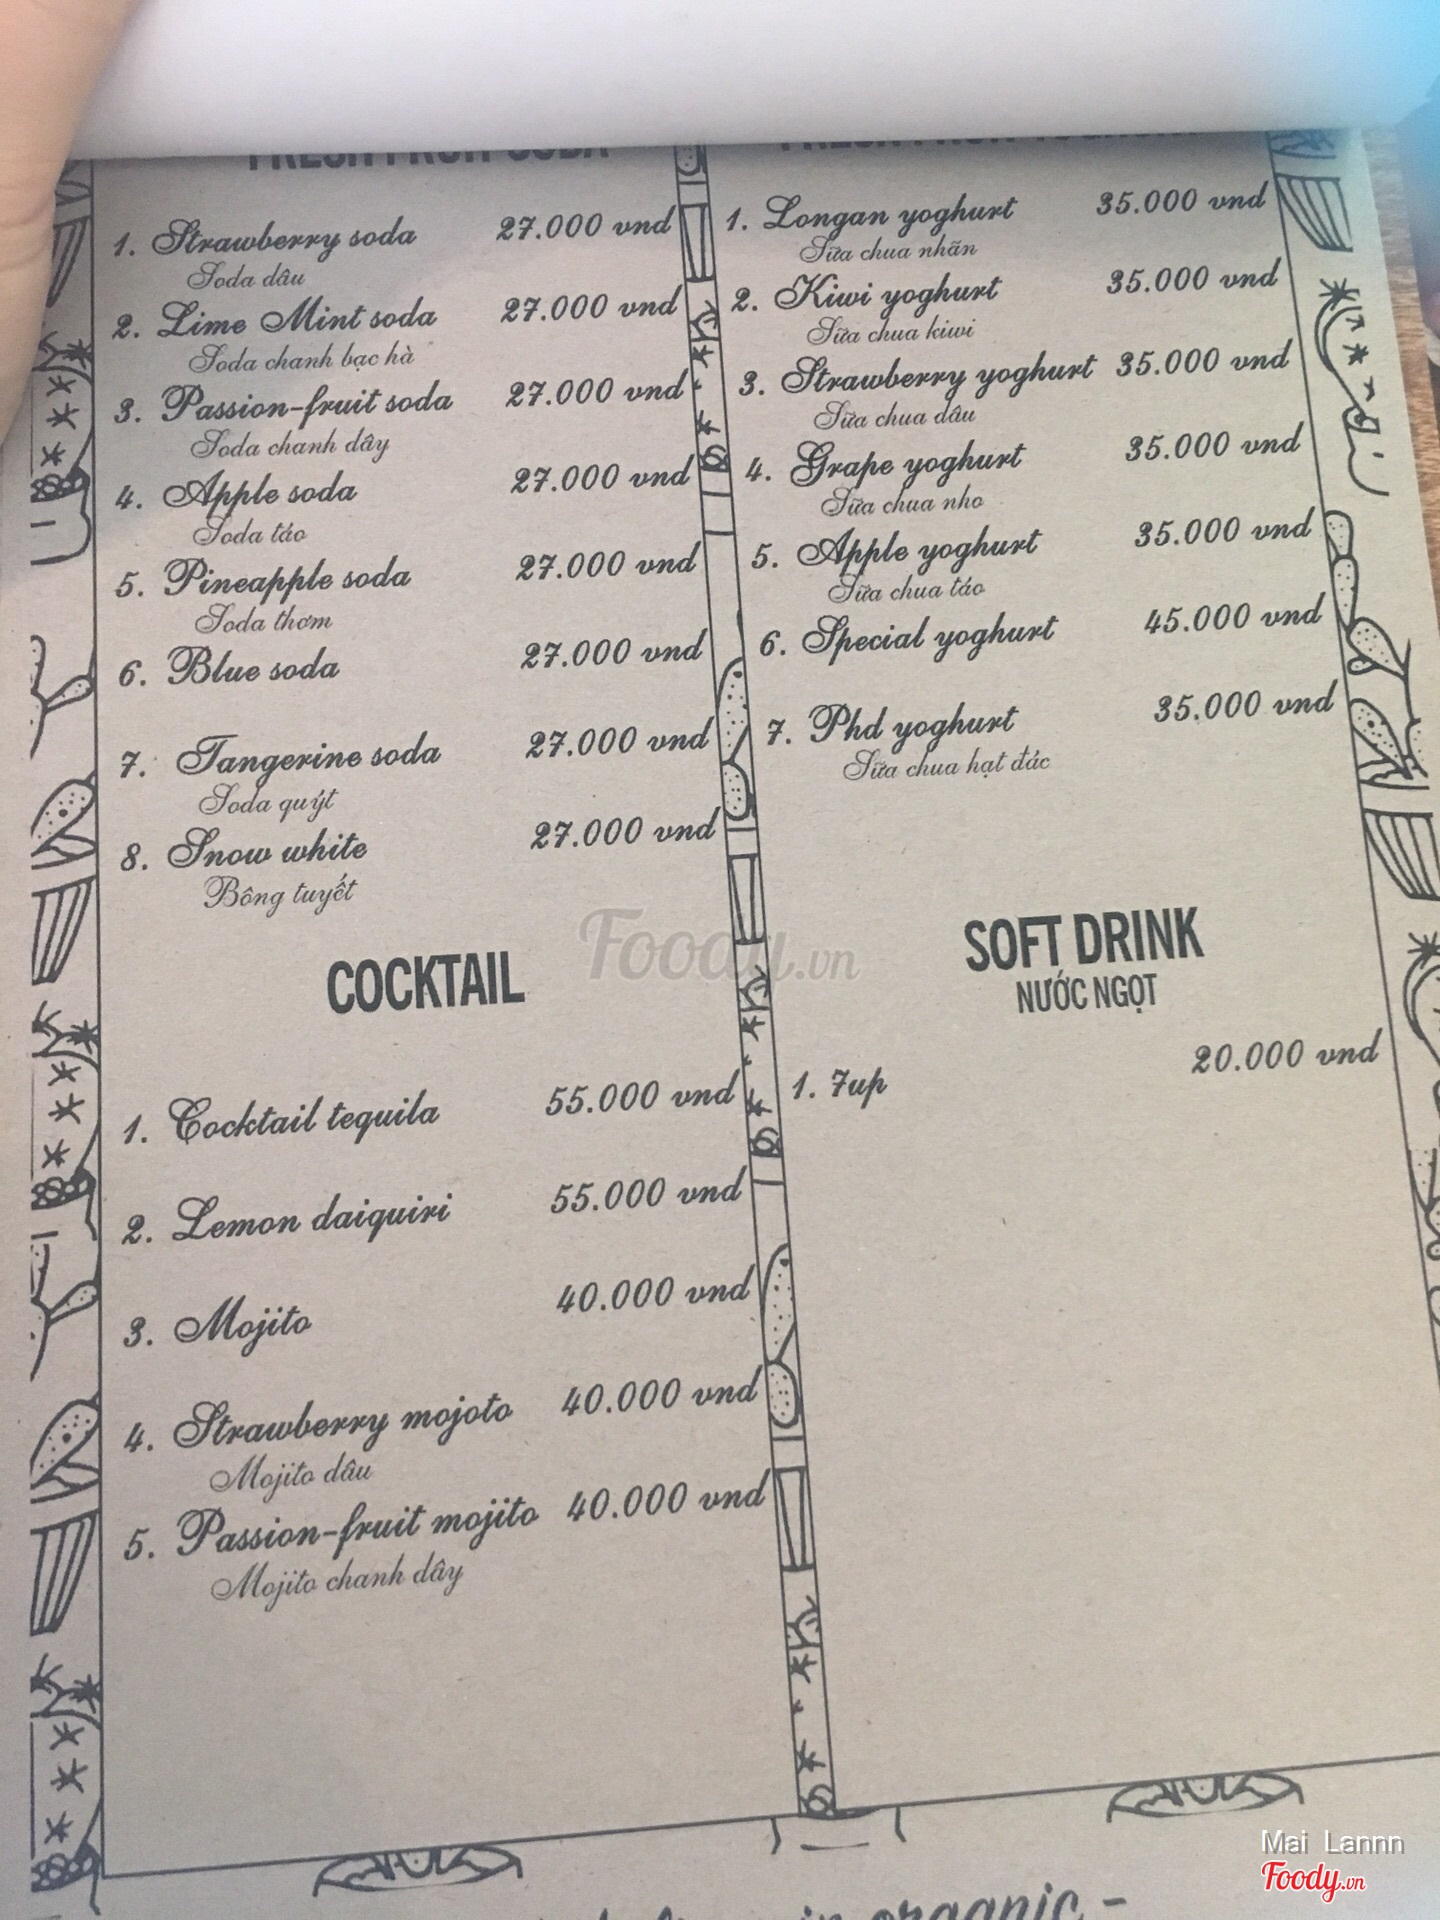 FRESH FRUIT SODA
1. Strawberry soda 27.000 vnd
Soda dâu
2. Lime Mint soda 27.000 vnd
Soda chanh bạc hà
3. Passion-fruit soda 27.000 vnd
Soda chanh dây
4. Apple soda 27.000 vnd
Soda táo
5. Pineapple soda 27.000 vnd
Soda thơm
6. Blue soda 27.000 vnd
7. Tangerine soda 27.000 vnd
Soda quýt
8. Snow white 27.000 vnd
Bông tuyết
COCKTAIL
1. Cocktail tequila 55.000 vnd
2. Lemon daiquiri 55.000 vnd
3. Mojito 40.000 vnd
4. Strawberry mojoto 40.000 vnd
Mojito dâu
5. Passion-fruit mojito 40.000 vnd
Mojito chanh dây
FRESH FRUIT YOGHURT
1. Longan yoghurt 35.000 vnd
Sữa chua nhãn
2. Kiwi yoghurt 35.000 vnd
Sữa chua kiwi
3. Strawberry yoghurt 35.000 vnd
Sữa chua dâu
4. Grape yoghurt 35.000 vnd
Sữa chua nho
5. Apple yoghurt 35.000 vnd
Sữa chua táo
6. Special yoghurt 45.000 vnd
7. Phd yoghurt 35.000 vnd
Sữa chua hạt đác
SOFT DRINK
NƯỚC NGỌT
1. 7up 20.000 vnd
Foody.vn
in organic -
Mai Lannn
Foody.vn